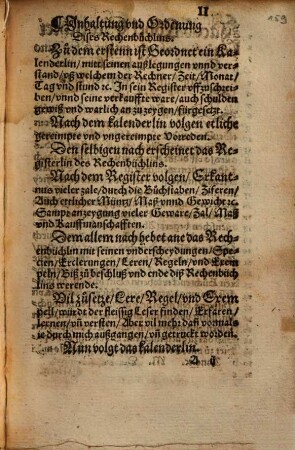 II
159
¶ Inhaltung vnd Ordenung
Diſes Rechenbüchlins.
Zů dem erſtenn iſt Geordnet ein Ka-
lenderlin / mitt ſeinen außlegungen vnnd ver-
ſtand / vß welchem der Rechner / Zeit / Monat /
Tag vnd ſtund ꝛc. In ſein Regiſter vffzuſchrei-
ben / vnnd ſeine verkauffte ware / auch ſchulden
gewiß vnd warlich an zu zeygen / fürgeſetzt.
Nach dem kalenderlin volgen etliche
gereimpte vnd vngereimpte Vorreden.
Den ſelbigen nach erſcheinet das Re-
giſterlin des Rechenbüchlins.
Nach dem Regiſter volgen / Erkant-
nus vieler zale / durch die Bůchſtaben / Ziferen /
Auch etlicher Müntz / Maß vnnd Gewicht ꝛc.
Sampt anzeygung vieler Geware / Zal / Maß
vnd Kauffmanſchafften.
Dem allem nach hebet ane das Rech-
enbüchlin mit ſeinen vnderſcheydungen / Spe-
cien / Erclerungen / Leren / Regeln / vnd Exem
peln / Biß zů beſchluß vnd ende diß Rechenbüch
lins werende.
Vil zůſetze / Lere / Regel / vnd Exem
pell / würdt der fleiſſig Leſer finden / Erfaren /
Lernen / vñ verſten / Aber vil mehr dañ vormals
ie durch mich außgangen / vñ getruckt worden.
Nun volgt das kalenderlin.
A ij